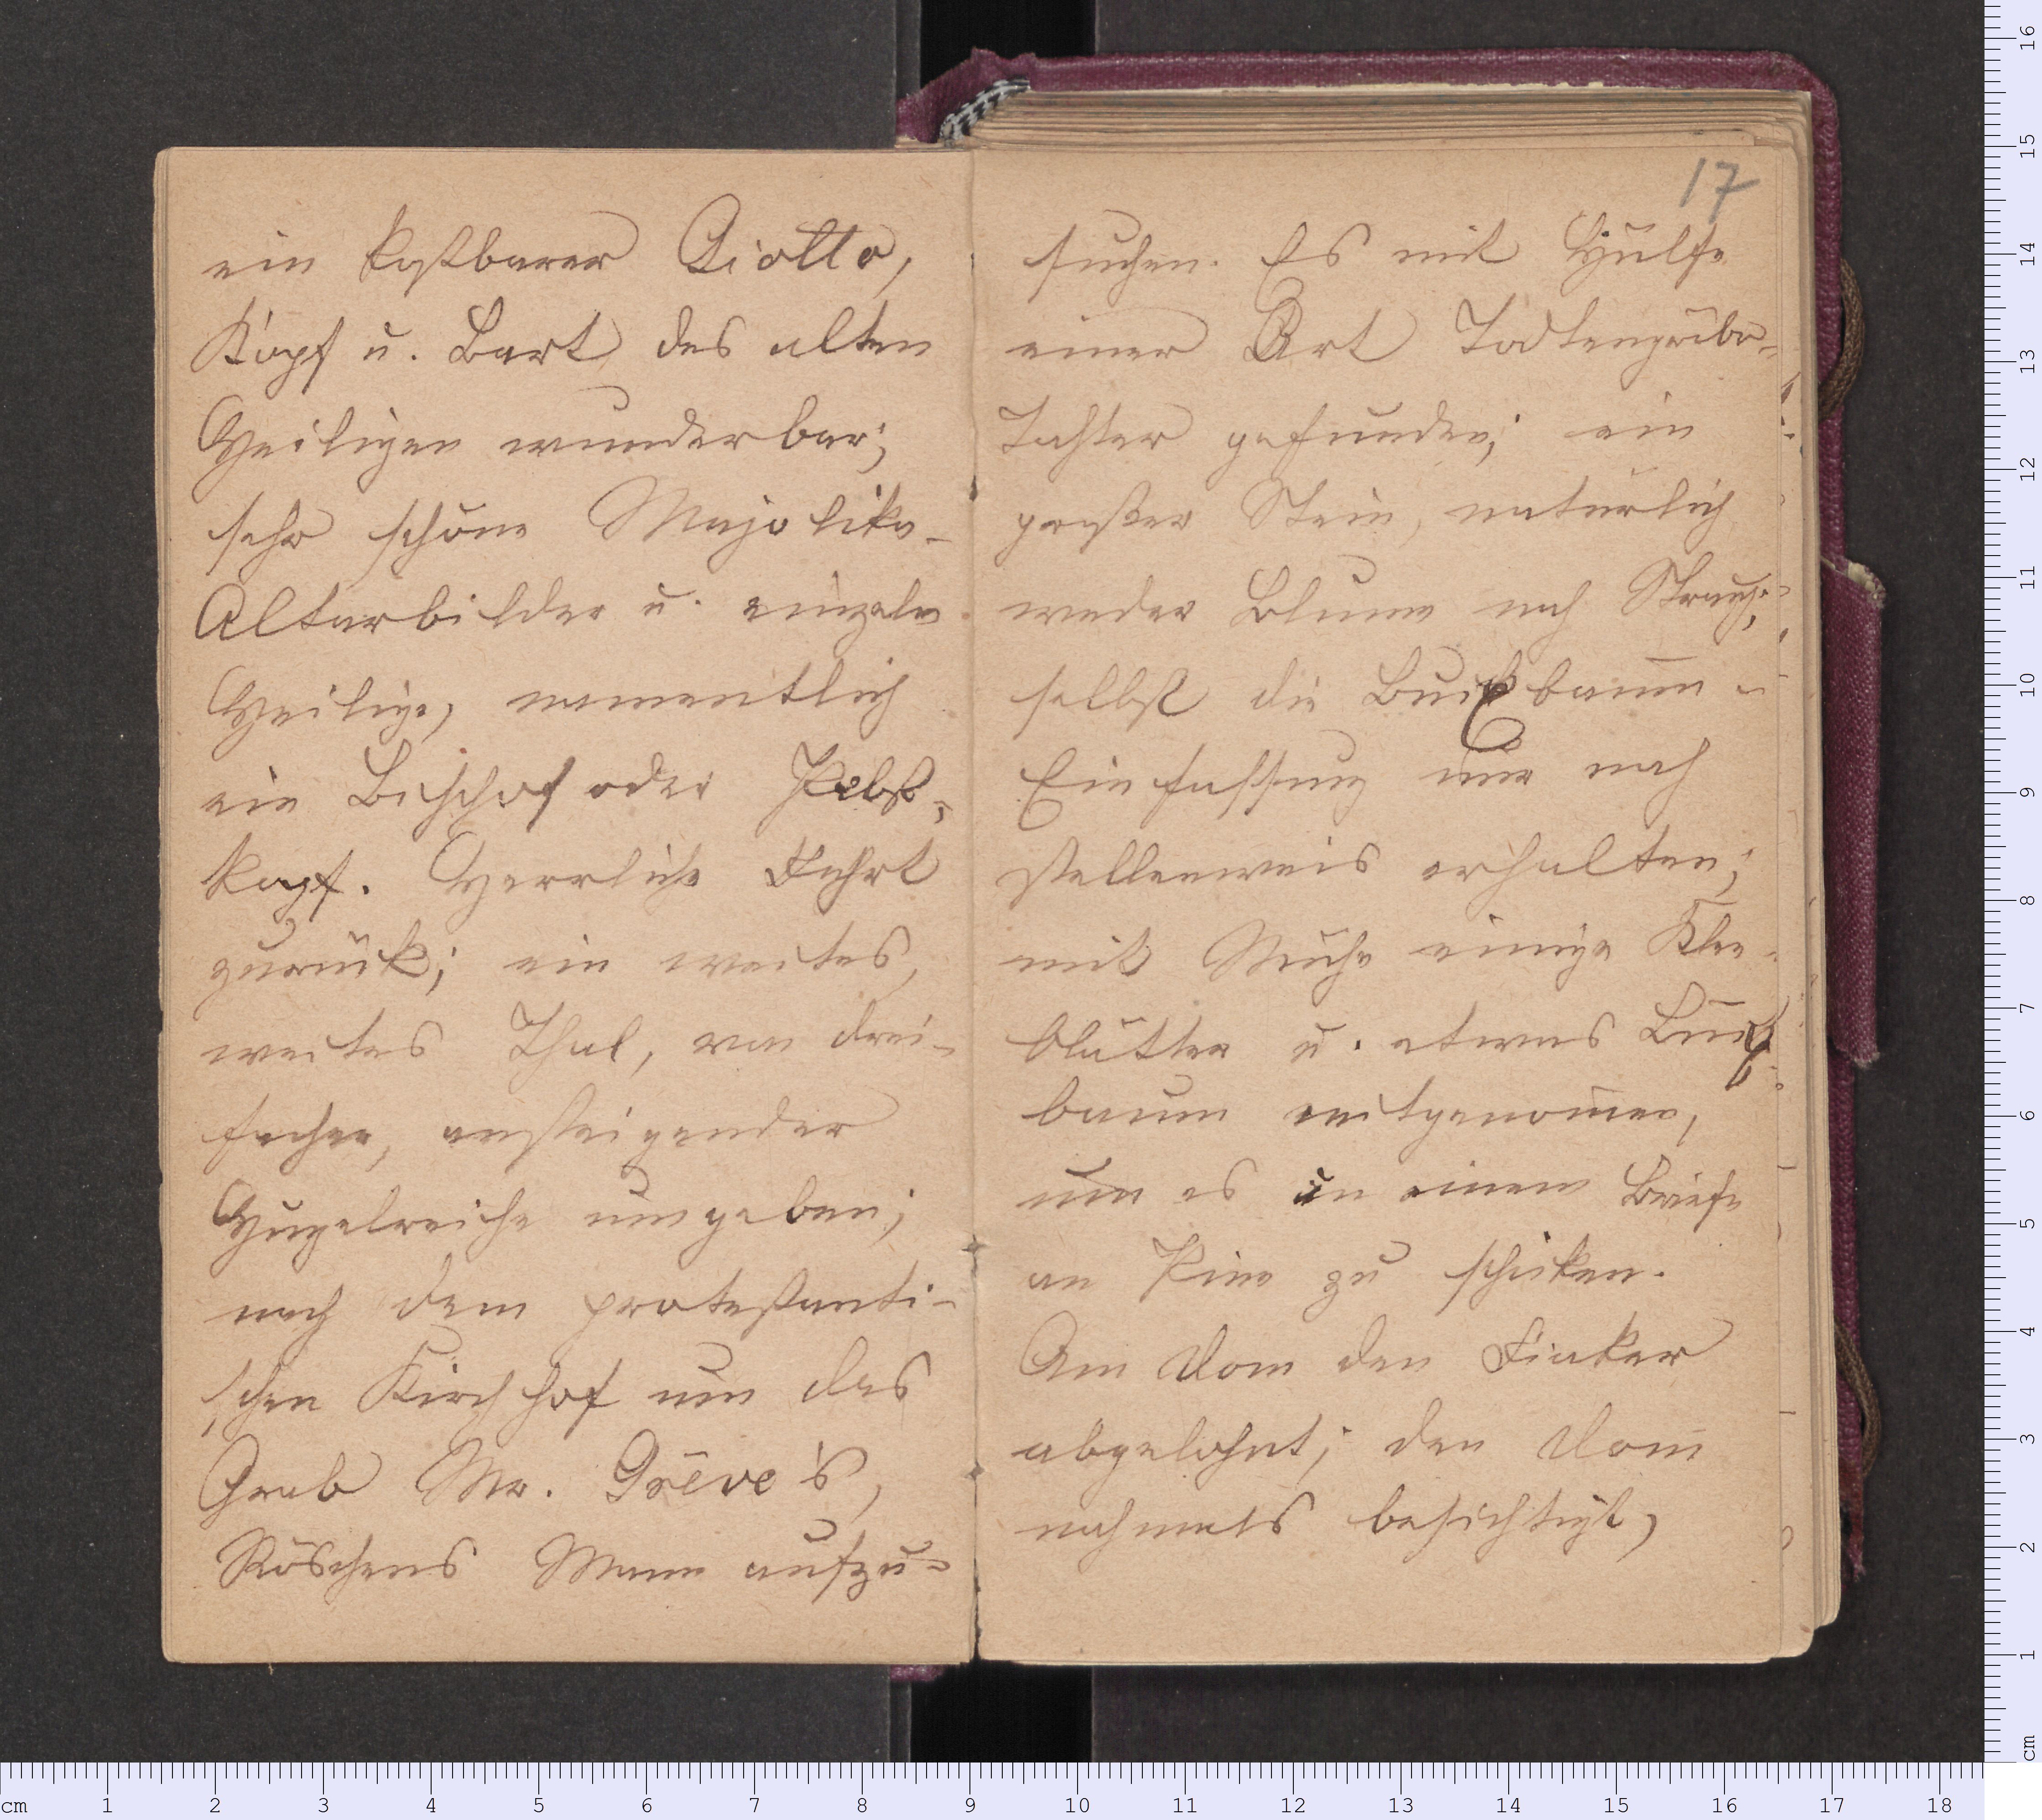 ein kostbarer Giotto,
Kopf u. Bart des alten
Heiligen wunderbar;
sehr schöne Majolika-
Altarbilder u. einzelne
Heilige, namentlich
ein Bischof oder Pabst-
kopf. Herrliche Fahrt
zurück; ein weites,
weites Thal, von drei-
facher, ansteigender
Hügelreihe umgeben;
nach dem protestanti-
schen Kirchhof um das
Grab Mr. Grêve's,
Röschens Mann aufzu-
17
suchen. Es mit Hülfe
einer Art Todtengräbe-
Tochter gefunden; ein
großer Stein, natürlich
weder Blume noch Strauch;
selbst die Buchsbaum-
Einfassung nur noch
stellenweis erhalten;
mit Mühe einige Klee-
blätter u. etwas Buchs-
baum mitgenom̅en,
um es in einem Briefe
an Pine zu schicken.
Am Dom den Fiaker
abgelohnt; den Dom
nochmals besichtigt,